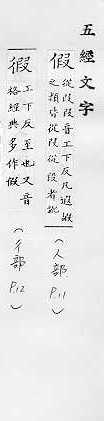 五經文字
假 從叚叚音工下反凡遐蝦
之類皆從叚從段者訛
（人部 P.11）
徦 工下反至也又音
格經典多作假
（彳部 P.12）